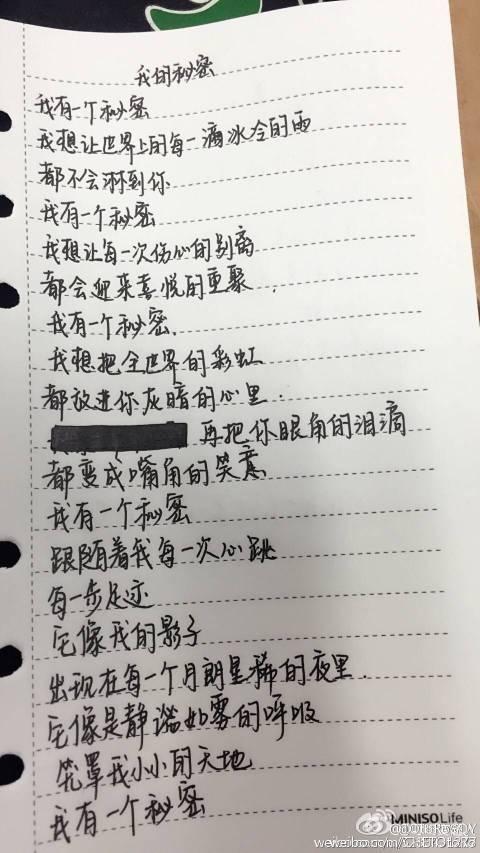 我的秘密
我有一个秘密
我想让世界上的每一滴冰冷的雨
都不会淋到你
我有一个秘密
我想让每一次伤心的别离
都会迎来喜悦的重聚.
我有一个秘密.
我想把全世界的彩虹
都放进你灰暗的心里.
再把你眼角的泪滴
都变成嘴角的笑意
我有一个秘密
跟随着我每一次心跳
每一步足迹
它像我的影子
出现在每一个月朗星稀的夜里.
它像是静谧如雾的呼吸
笼罩我小小的天地
我有一个秘密
MINISO Life
weibo.com